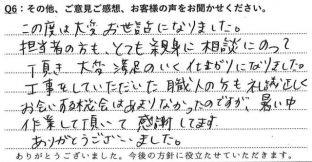 Q6：その他、ご意見ご感想、お客様の声をお聞かせください。
この度は大変お世話になりました。
担当者の方も、とても親身に相談にのって
頂き 大変満足のいく仕上がりになりました。
工事をしていただいた職人の方も礼儀正しく
お会いする機会はあまりなかったのですが、暑い中
作業して頂いて感謝してます。
ありがとうございました。
ありがとうございました。今後の方針に役立たせていただきます。